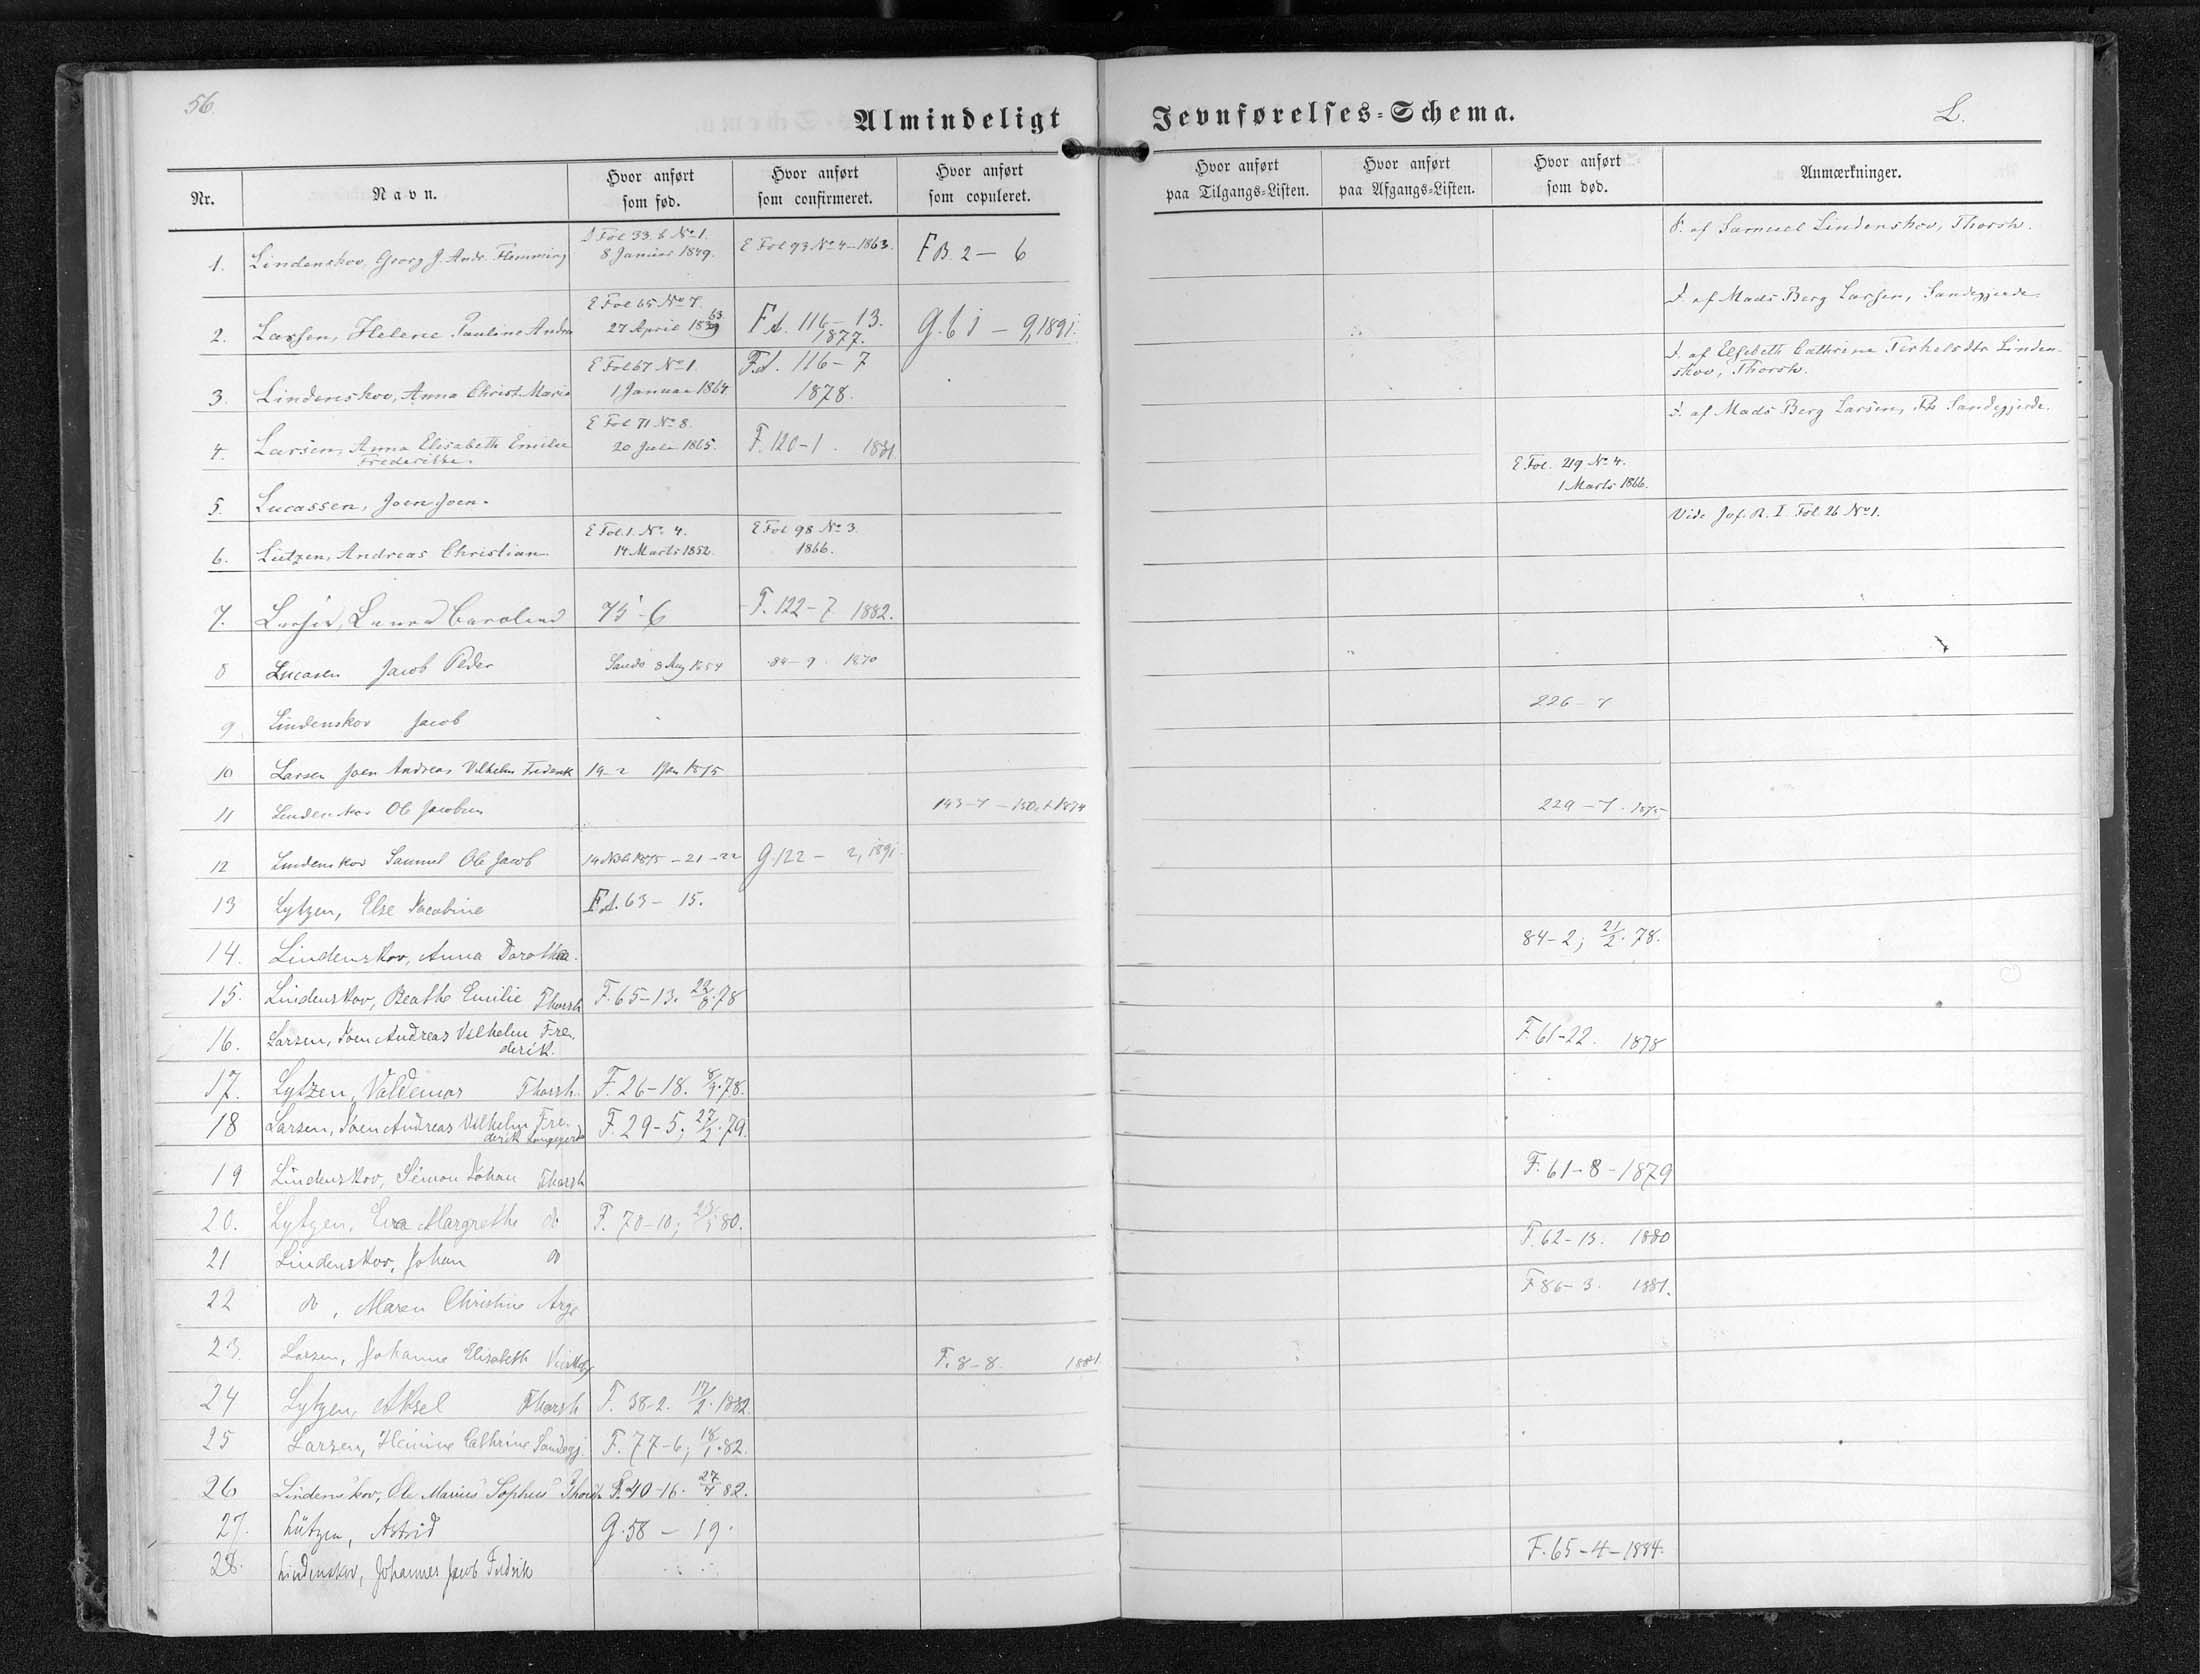 56.
Almindeligt Jevnførelses-Schema.
L.
Nr. Navn. Hvor anført som fød. Hvor anført som confirmeret. Hvor anført som copuleret. Hvor anført paa Tilgangs-Listen. Hvor anført paa Afgangs-Listen. Hvor anført som død. Anmærkninger.
1. Lindenskov, Georg J. Andr. Flemming Fol 33.b No 1. 8 Januar 1849. E Fol 93 No 4-1863. F B. 2 - 6 S. af Samuel Lindenskov, Thorsh.
2. Larsen, Helene Pauline Andrea E Fol 65 No 7. 27 April 1863 F A. 116 - 13. 1877. G. - 9, 1891. D. af Mads Berg Larsen, Sandegjerde.
3. Lindenskov, Anna Christ. Marie E Fol 67 No 1. 1 Januar 1864. F.A. 116 - 7 1878. D. af Elsebeth Cathrine Terkelsdtr Lindenskov, Thorsh.
4. Larsen, Anna Elisabeth Emilie Frederikke. E Fol 71 No 8. 20 Juli 1865. F. 120-1. 1881 D. af Mads Berg Larsen, Sandegjerde.
5. Lucassen, Joen Joen. E Fol. 219 No 4. 1 Marts 1866.
6. Lützen, Andreas Christian. E Fol. 1. No 4. 14 Marts 1852. E Fol 98 No 3. 1866. Vide Jvf. R. I Fol 26 No 1.
7. Larsen, Laura Caroline 75 - 6 F. 122 - 7 1882.
8 Lucasen Jacob Peder Sandø 8 Aug 1854 84 - 9. 1870
9 Lindenskov Jacob 226 - 7
10 Larsen Joen Andreas Vilhelm Frederik 19 - 2 1 Jan 1875
11 Lindenskov Ole Jacobus 143 - 7 - 1874 229 - 7. 1875
12 Lindenskov Samuel Ole Jacob 1875 - 21 - 22 G. 122 - 2, 1891.
13 Lytzen, Else Jacobine F.A. 63 - 15.
14. Lindenskov, Anna Dorothea. 84 - 2; 21/2. 78.
15. Lindenskov, Beathe Emilie Thorsh F. 65 - 13. 22/8. 78
16. Larsen, Joen Andreas Vilhelm Frederik. F. 61 - 22. 1878
17. Lytzen, Valdemar Thorsh. F. 26 - 18. 8/9. 78.
18 Larsen, Joen Andreas Vilhelm Frederik F. 29 - 5; 27/2. 79.
19 Lindenskov, Simon Johan Thorsh F. 61 - 8 - 1879
20. Lytzen, Eva Margrethe do F. 70 - 10; 80.
21 Lindenskov, Johan do F. 62 - 13. 1880
22 do, Maren Christine Arge F. 86 - 3. 1881.
23. Larsen, Johanne Elisabeth F. 8 - 8. 1881.
24 Lytzen, Aksel Thorsh F. 38 - 2. 17/2. 1882.
25 Larsen, Heinine Cathrine Sandegj. F. 77 - 6; 18/1. 82.
26 Lindenskov, Ole Marius Sophus Thorsh F. 40 - 16. 27/7 82.
27. Lützen, Astrid G. 58 - 19.
28. Lindenskov, Johannes Jacob Fredrik F. 65 - 4 - 1884.